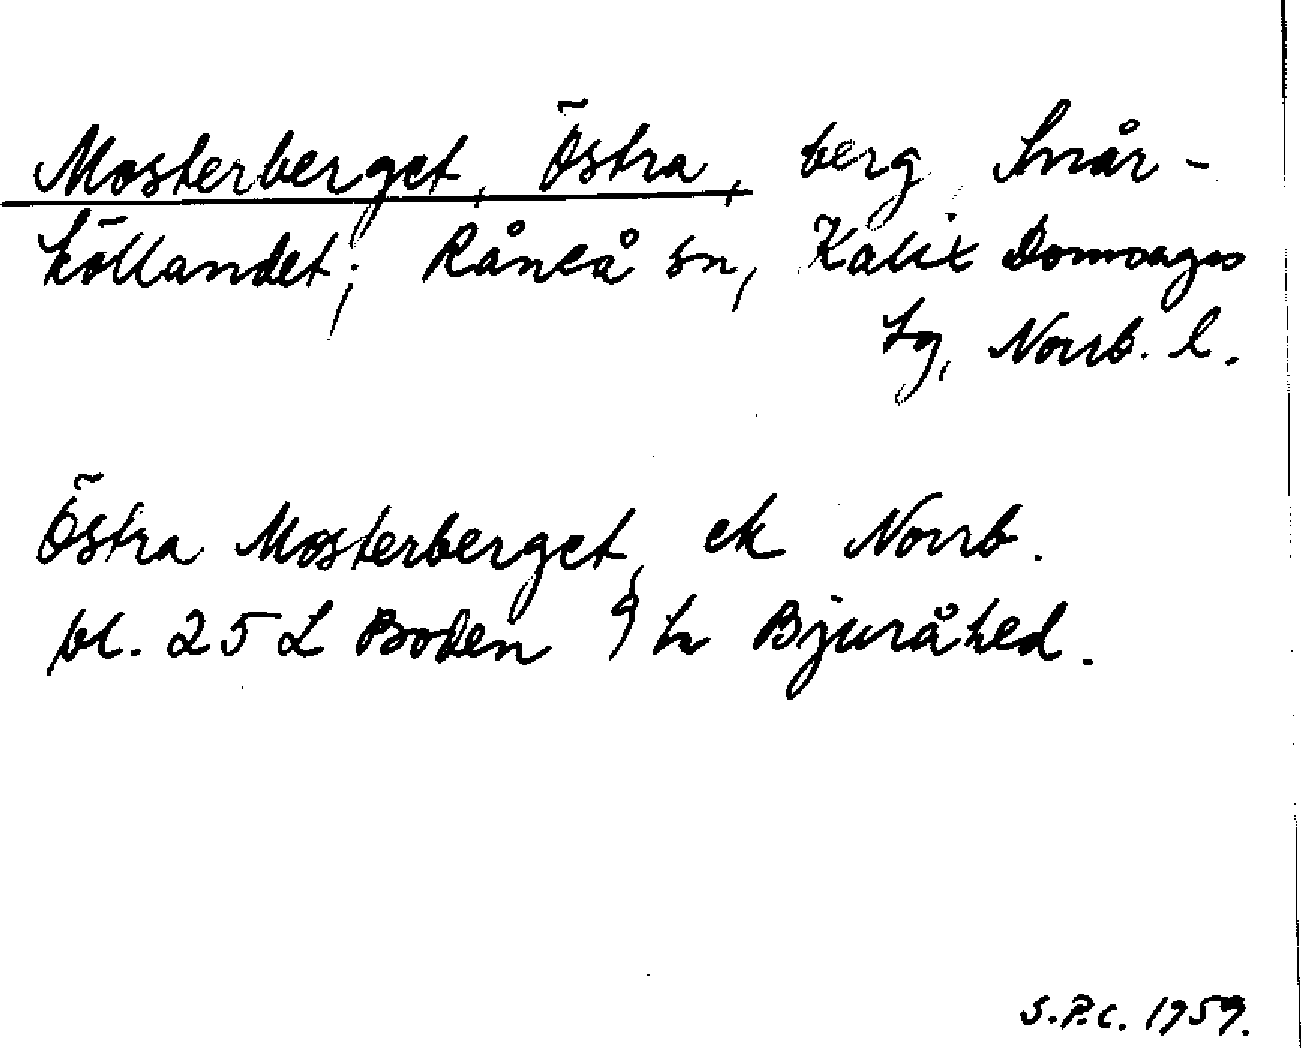 Mosterberget, Östra, berg Snår-
köllandet; Råneå sn, Kalix Domsagas
tg, Norrb. l.
Östra Mosterberget, ek Norrb.
bl. 25 L Boden 9 h Bjuråhed.
S.P.C. 1959.